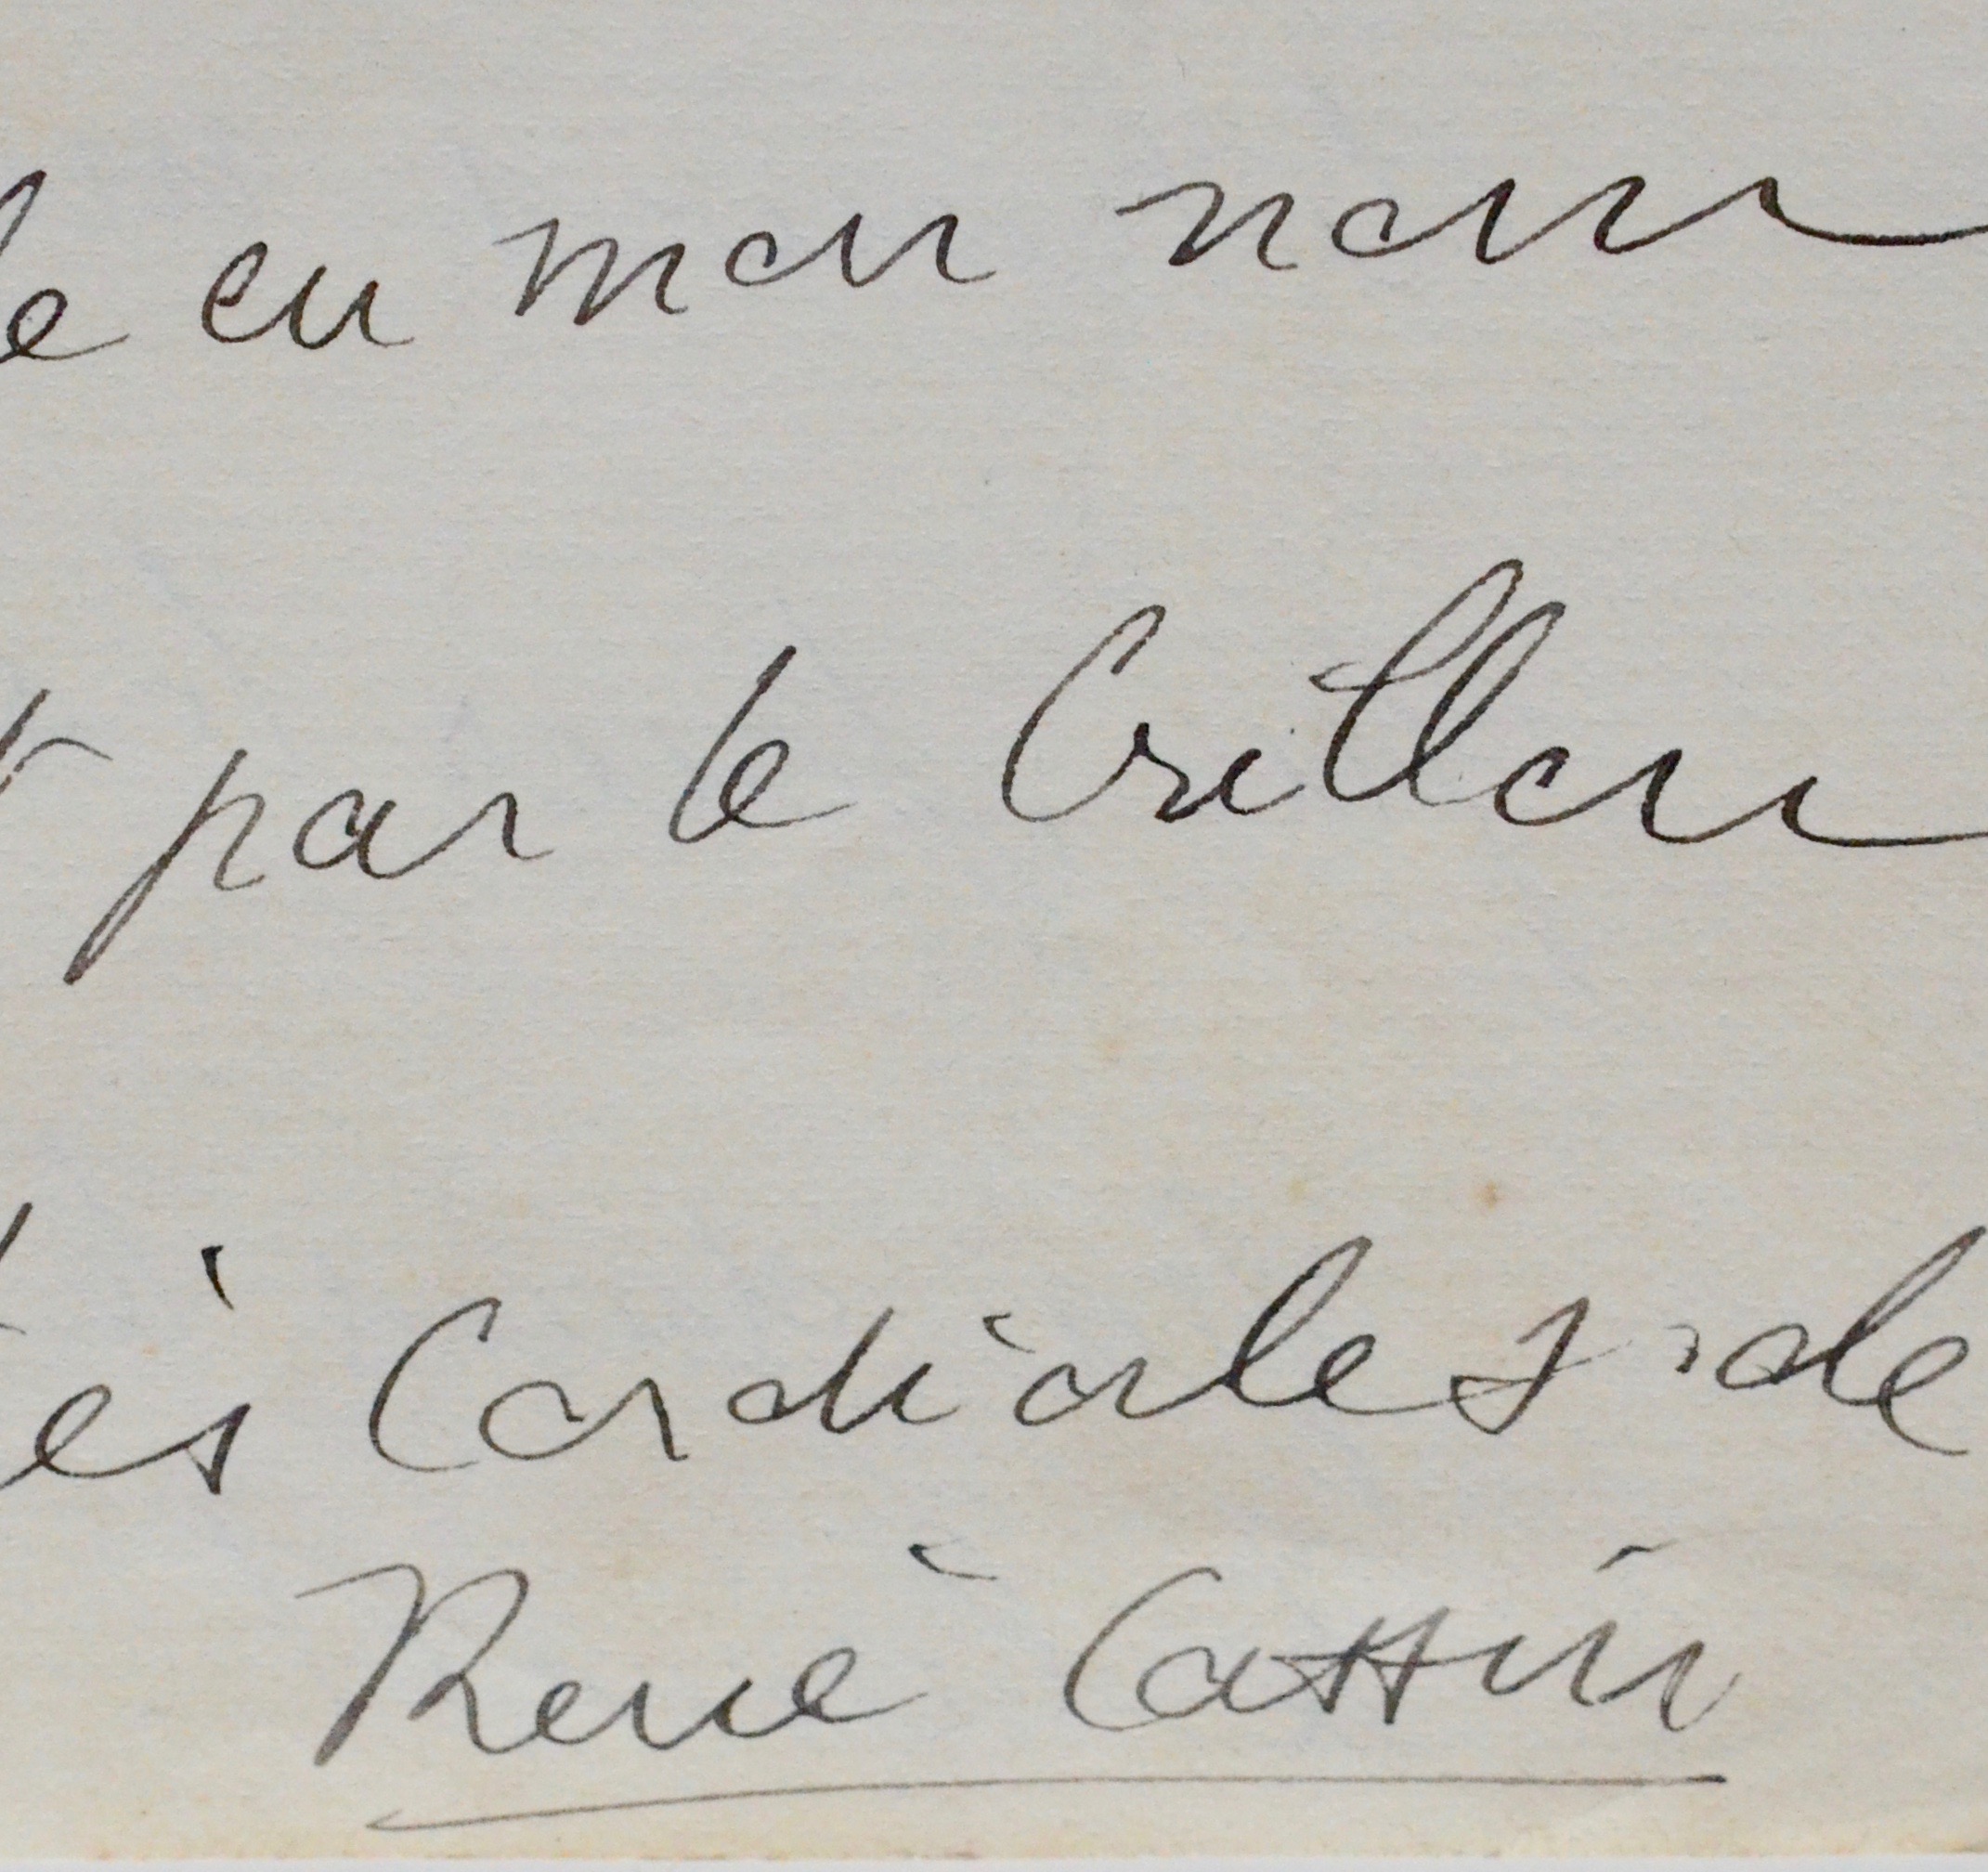 le en mon nom
par le Crillon
tés Cordiales de
René Cassin